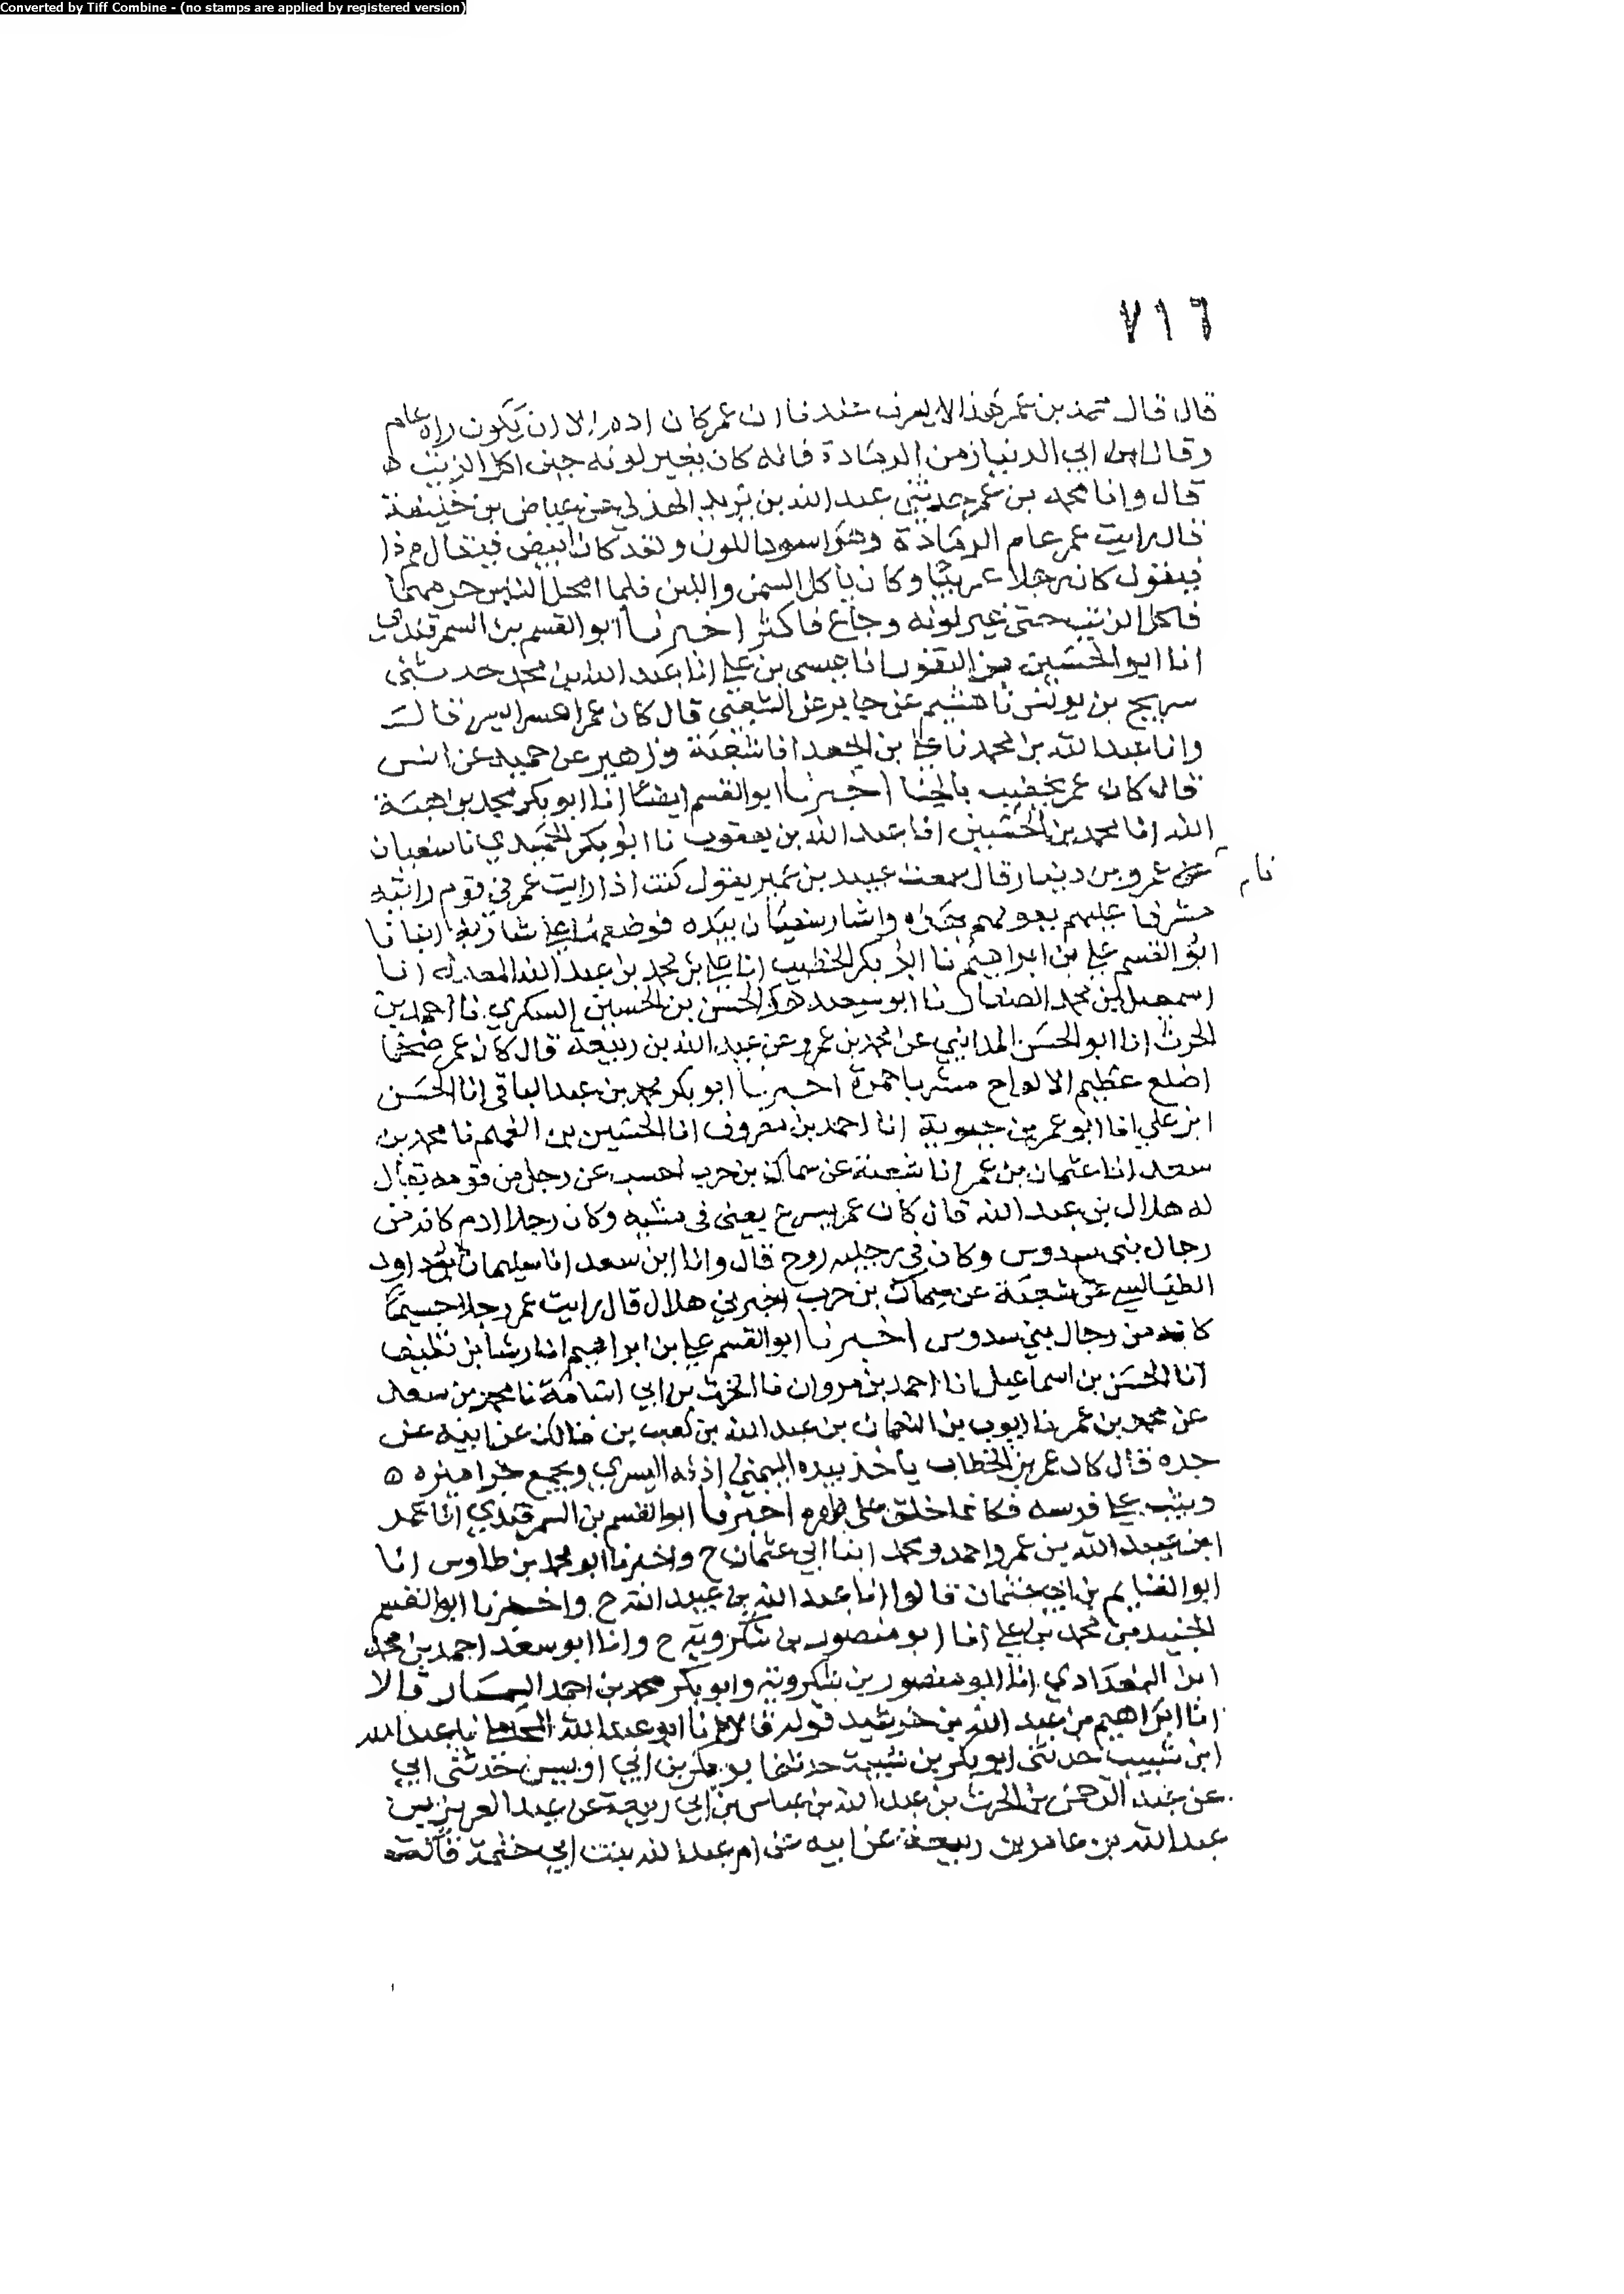 Converted by Tiff Combine - (no stamps are applied by registered version)
٧١٦
قال قال محمد بن عمر هذا لا يعرف عندنا ان عمر كان ادم الا ان يكون راه عام
وقال ابن ابي الدنيا زمن الرمادة فانه كان تغير لونه حين اكل الزيت ه
قال وانا محمد بن عمر حدثني عبد الله بن يزيد الهذلي عن عياض بن خليفة
قال رايت عمر عام الرمادة وهو اسود اللون ولقد كان ابيض فيقال مم ذا
فيقول كان رجلا عربيا وكان ياكل السمن واللبن فلما امحل الناس حرمهما
فاكل الزيت حتى غير لونه وجاع فاكثر اخبرنا ابو القسم بن السمرقندي
انا ابو الحسين بن النقور انا عيسى بن علي انا عبد الله بن محمد حدثني
سريج بن يونس نا هشيم عن جابر عن الشعبي قال كان عمر اعسر ايسر قالـ
وانا عبد الله بن محمد نا علي بن الجعد انا شعبة وزهير عن حميد عن انس
قال كان عمر يخضب بالحنا اخبرنا ابو القسم ايضا انا ابو بكر محمد بن هبة
الله انا محمد بن الحسين انا عبد الله بن يعقوب نا ابو بكر الحميدي نا سفيان
نا
عن عمرو بن دينار قال سمعت عبيد بن عمير يقول كنت اذا رايت عمر في قوم رايته
مشرفا عليهم يفوقهم واشار سفيان بيده فوضعها على انبانا
ابو القسم علي بن ابراهيم نا ابو بكر الخطيب انا علي بن محمد بن عبد الله المعدل انا
اسمعيل بن محمد الصفار نا ابو سعيد الحسن بن الحسين السكري نا احمد بن
الحرث انا ابو الحسن المدايني عن محمد بن عمر وعن عبد الله بن ربيعة قال كان عمر ضخما
اضلع عظيم الالواح مشربا حمرة اخبرنا ابو بكر محمد بن عبد الباقي انا الحسن
ابن علي انا ابو عمر بن حيوية انا احمد بن معروف انا الحسين بن الفهم نا محمد بن
سعد انا عثمان بن عمر انا شعبة عن سماك بن حرب احسب عن رجل من قومه يقال
له هلال بن عبد الله قال كان عمر يسرع يعني في مشيه وكان رجلا ادم كانه من
رجال بني سدوس وكان في رجليه روح قال وانا ابن سعد انا سليمان ابو داود
الطيالسي عن شعبة عن سماك بن حرب اخبرني هلال قال رايت عمر رجلا جسيما
كانه من رجال بني سدوس اخبرنا ابو القسم علي بن ابراهيم انا رشا بن نظيف
انا الحسن بن اسماعيل انا احمد بن مروان نا الحرث بن ابي اسامة نا محمد بن سعد
عن محمد بن عمر نا ايوب بن النعمان بن عبد الله بن كعب بن مالك عن ابيه عن
جده قال كان عمر بن الخطاب ياخذ بيده اليمني اذنه اليسري ويجمع جراميزه ه
ويثب علي فرسه فكانما خلق على ظهره اخبرنا ابو القسم بن السمرقندي انا عمر
ابن عبيد الله بن عمر واحمد ومحمد ابنا ابي عثمان ح واخبرنا ابو محمد بن طاوس انا
ابو الغنايم بن ابي عثمان قالوا انا عبد الله بن عبيد الله ح واخبرنا ابو القسم
الجنيد بن محمد بن علي انا ابو منصور بن شكرويه ح وانا ابو سعد احمد بن محمد
ابن البغدادي انا ابو منصور بن شكرويه وابو بكر محمد بن احمد السمسار قالا
انا ابراهيم بن عبد الله بن خرشيد قوله قالا نا ابو عبد الله المحاملي نا عبد الله
ابن شبيب حدثني ابو بكر بن شيبة حدثنا ابو بكر بن ابي اويس حدثني ابي
عن عبد الرحمن بن الحرث بن عبد الله بن عياش بن ابي ربيعة عن عبد العزيز بن
عبد الله بن عامر بن ربيعة عن ابيه عن ام عبد الله بنت ابي حثمة قالت